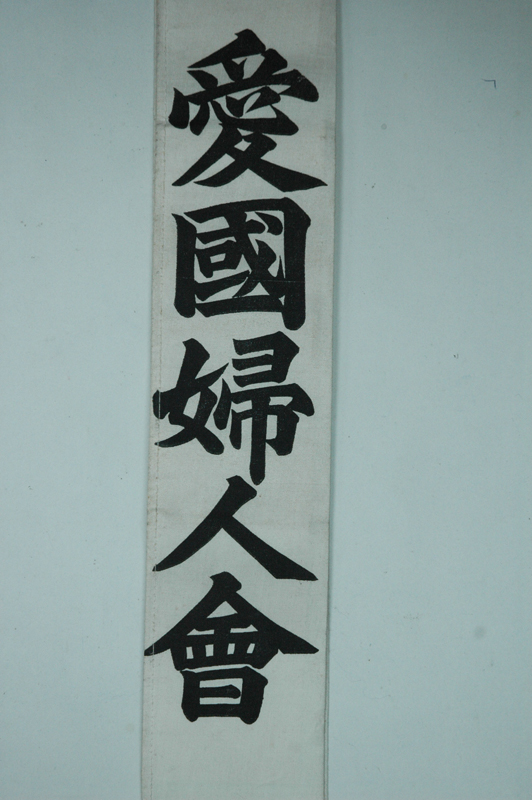 愛國婦人會